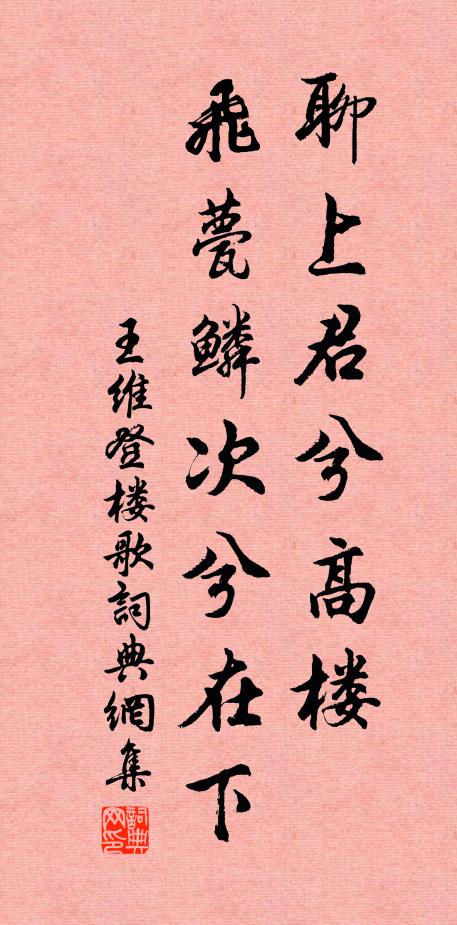 聊上君兮高楼
飛甍鱗次兮在下
王維登楼歌詞典網集
詞典网印